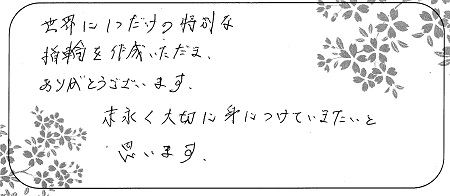 世界に1つだけの特別な
指輪を作成いただき、
ありがとうございます。
末永く大切に身につけていきたいと
思います。